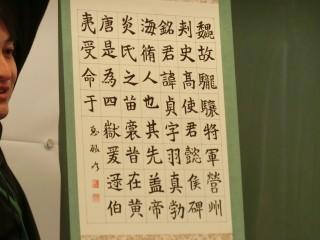 魏故龍驤將軍營州
刺史高使君懿侯碑
銘君諱貞字羽真勃
海脩人也其先盖帝
炎氏之苗裔昔在黄
唐是為四嶽爰逮伯
夷受命于